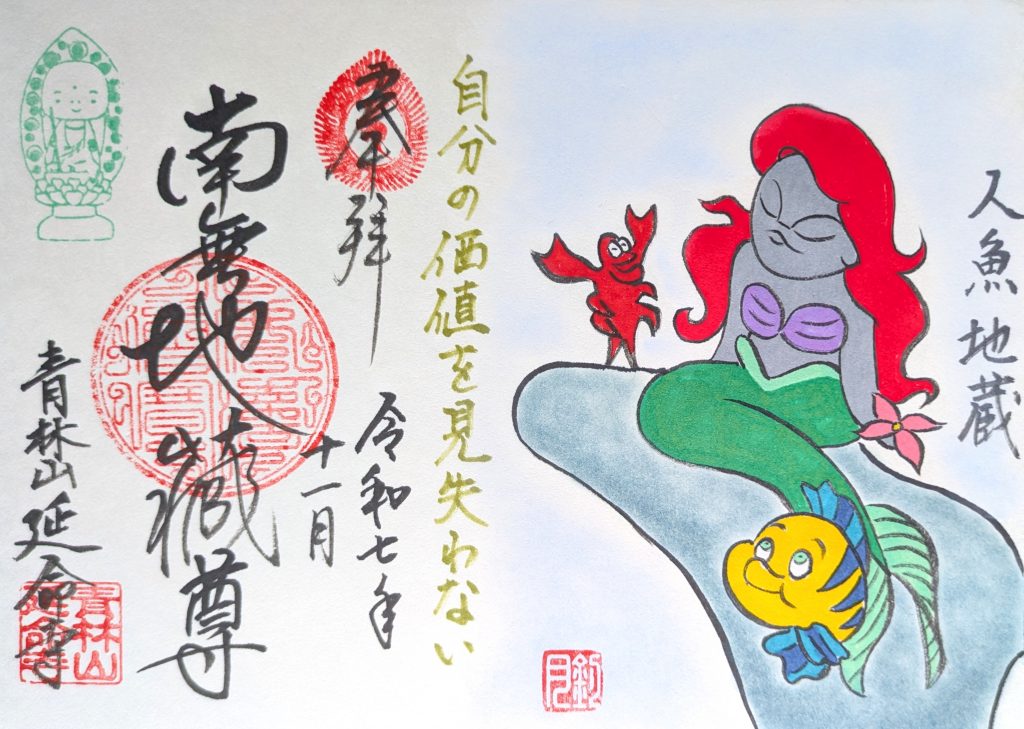 人魚地蔵
自分の価値を見失わない
奉拝
令和七年
十一月
南無地蔵尊
青林山延命寺
青林山